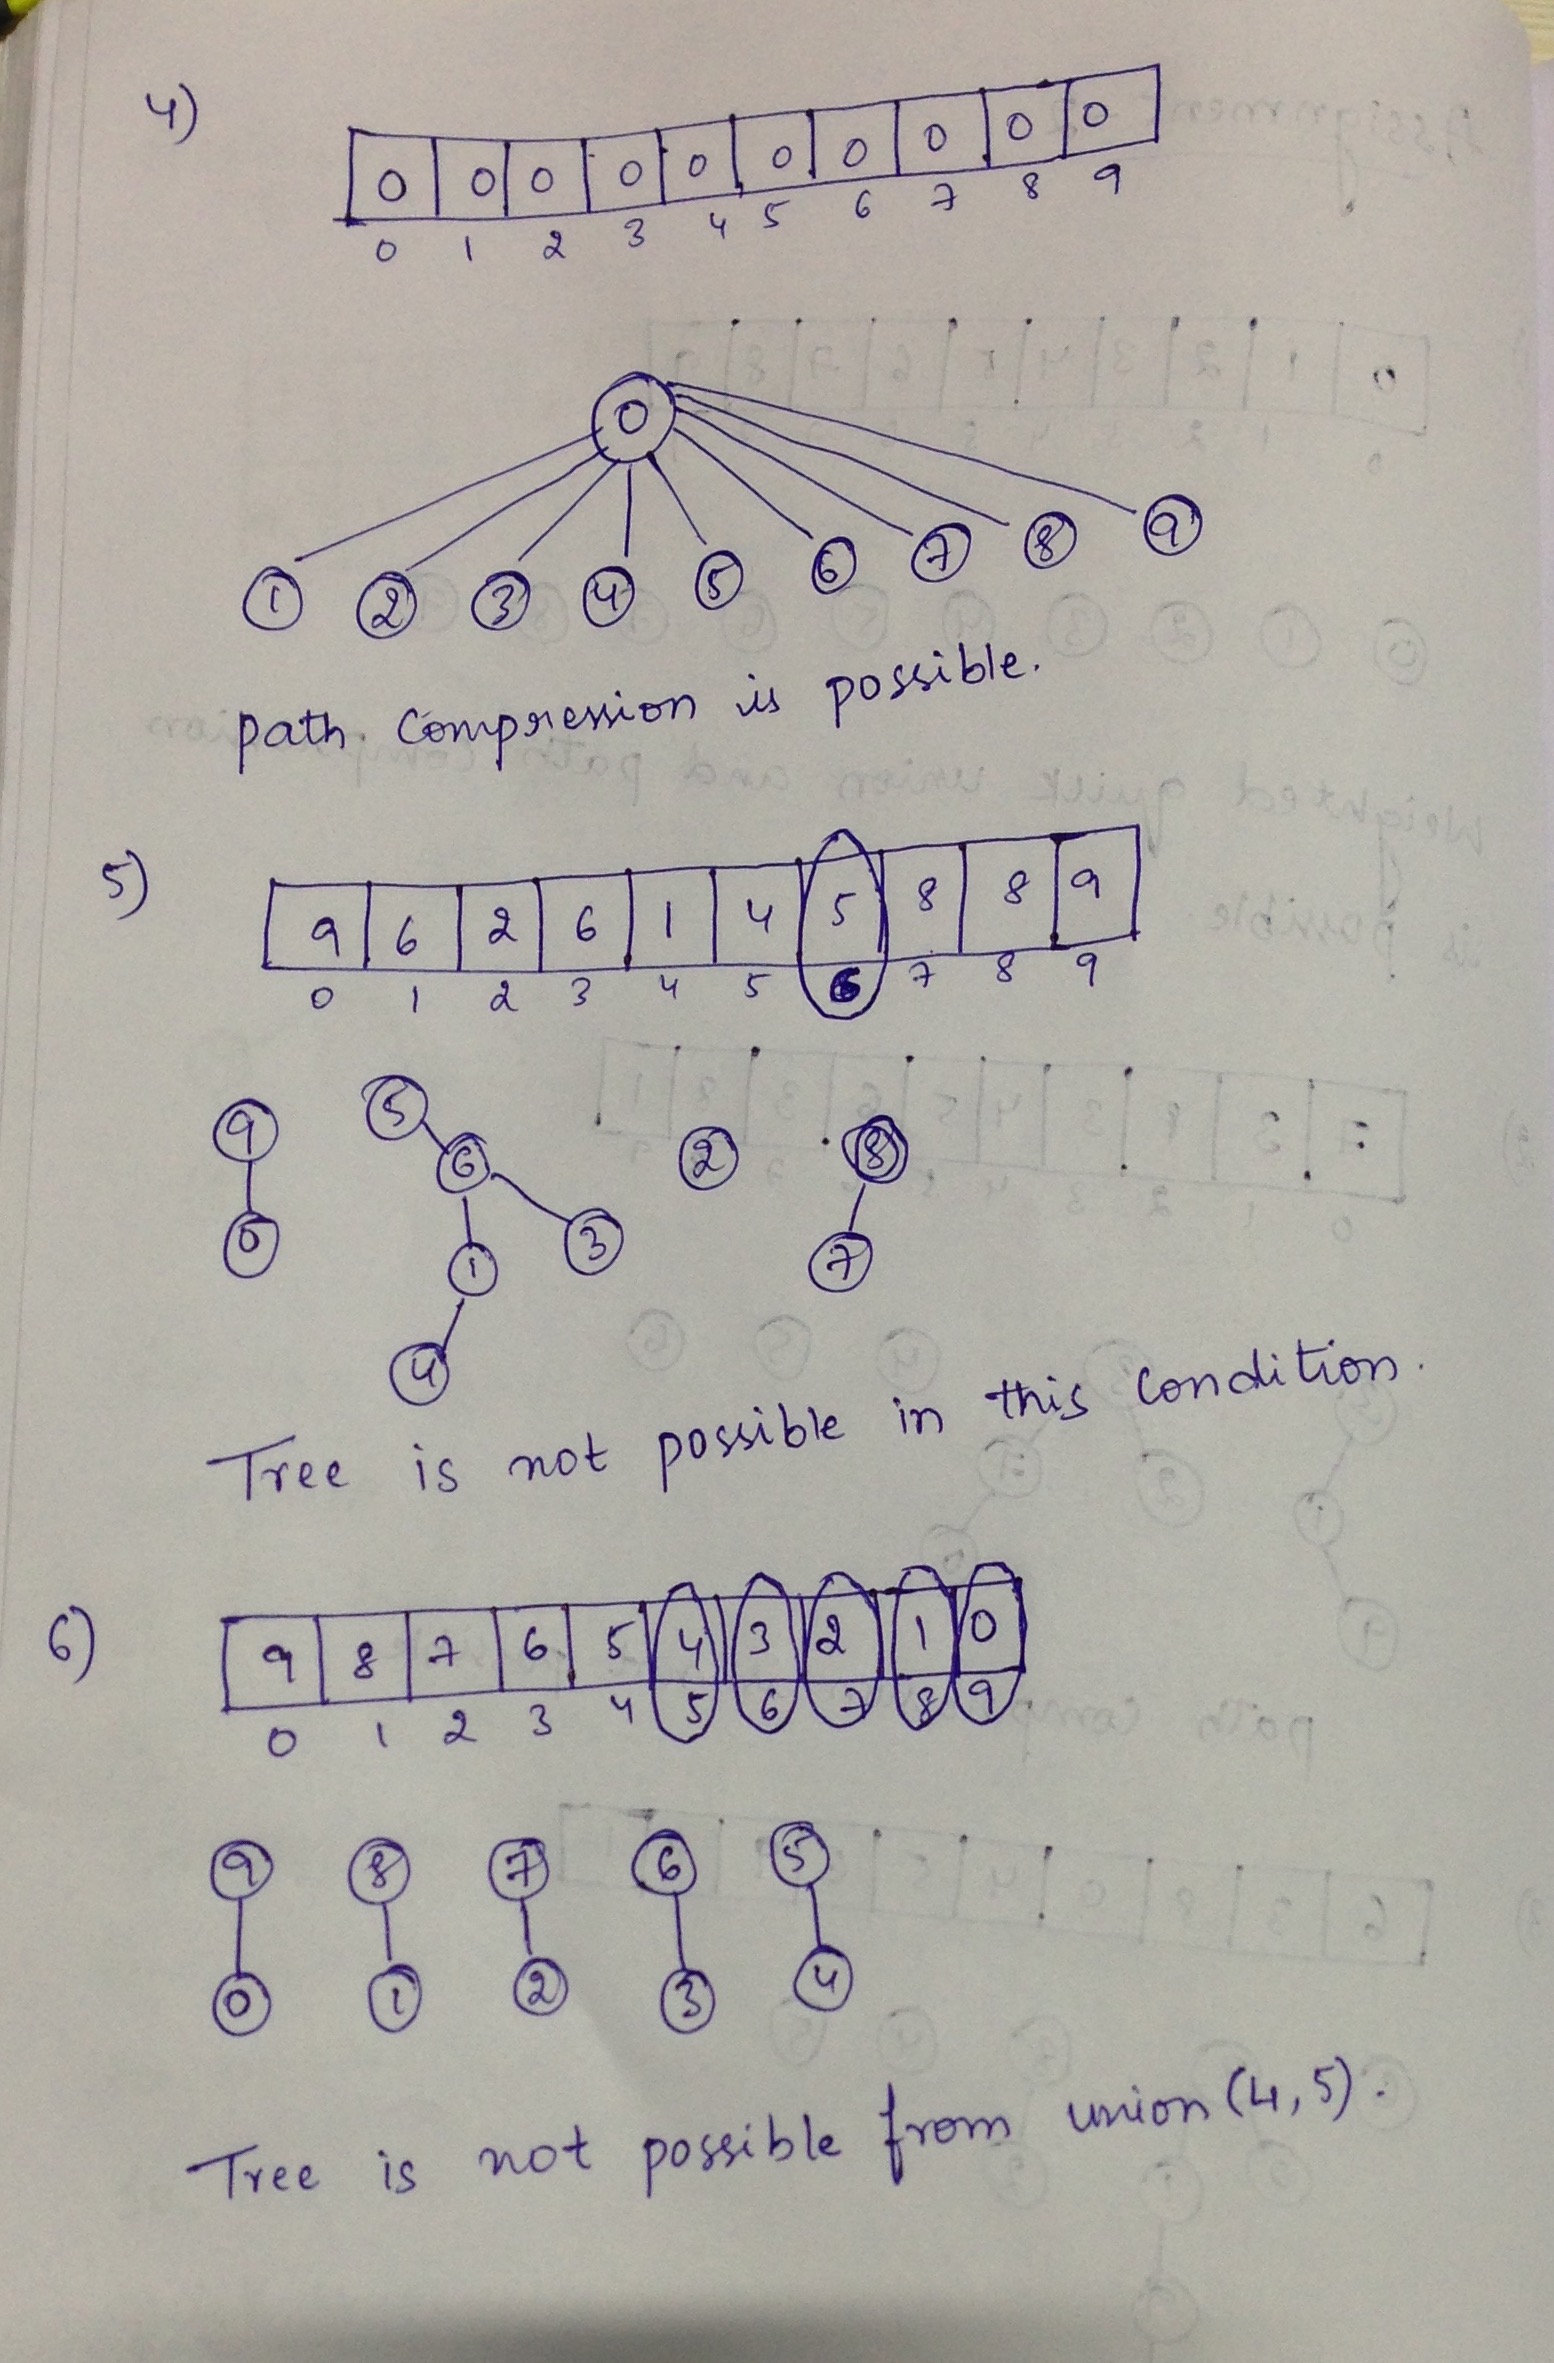 4)
0 0 0 0 0 0 0 0 0 0
0 1 2 3 4 5 6 7 8 9
0
1 2 3 4 5 6 7 8 9
path compression is possible.
5)
9 6 2 6 1 4 5 8 8 9
0 1 2 3 4 5 6 7 8 9
9 5 6 2 8
0 1 3 7
4
Tree is not possible in this condition.
6)
9 8 7 6 5 4 3 2 1 0
0 1 2 3 4 5 6 7 8 9
9 8 7 6 5
0 1 2 3 4
Tree is not possible from union (4,5).